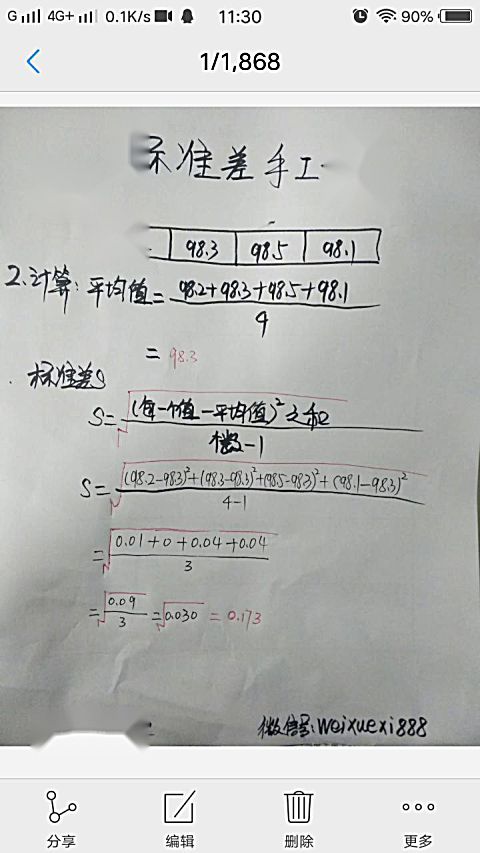 G 4G+ 0.1K/s 11:30 90%
1/1,868
标准差手工
98.3 98.5 98.1
2.计算:平均值= 98.2+98.3+98.5+98.1
4
= 98.3
标准差S
S= √(每一个值-平均值)²之和
个数-1
S= √(98.2-98.3)²+(98.3-98.3)²+(98.5-98.3)²+(98.1-98.3)²
4-1
= √0.01+0+0.04+0.04
3
= √0.09 = √0.030 = 0.173
3
微信号:weixuexi888
分享 编辑 删除 更多